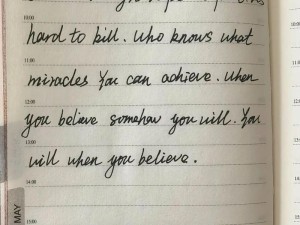 10:00
hard to kill. Who knows what
11:00
miracles You can achieve. When
12:00
you believe somehow you will. You
13:00
will when you believe.
14:00
15:00
MAY